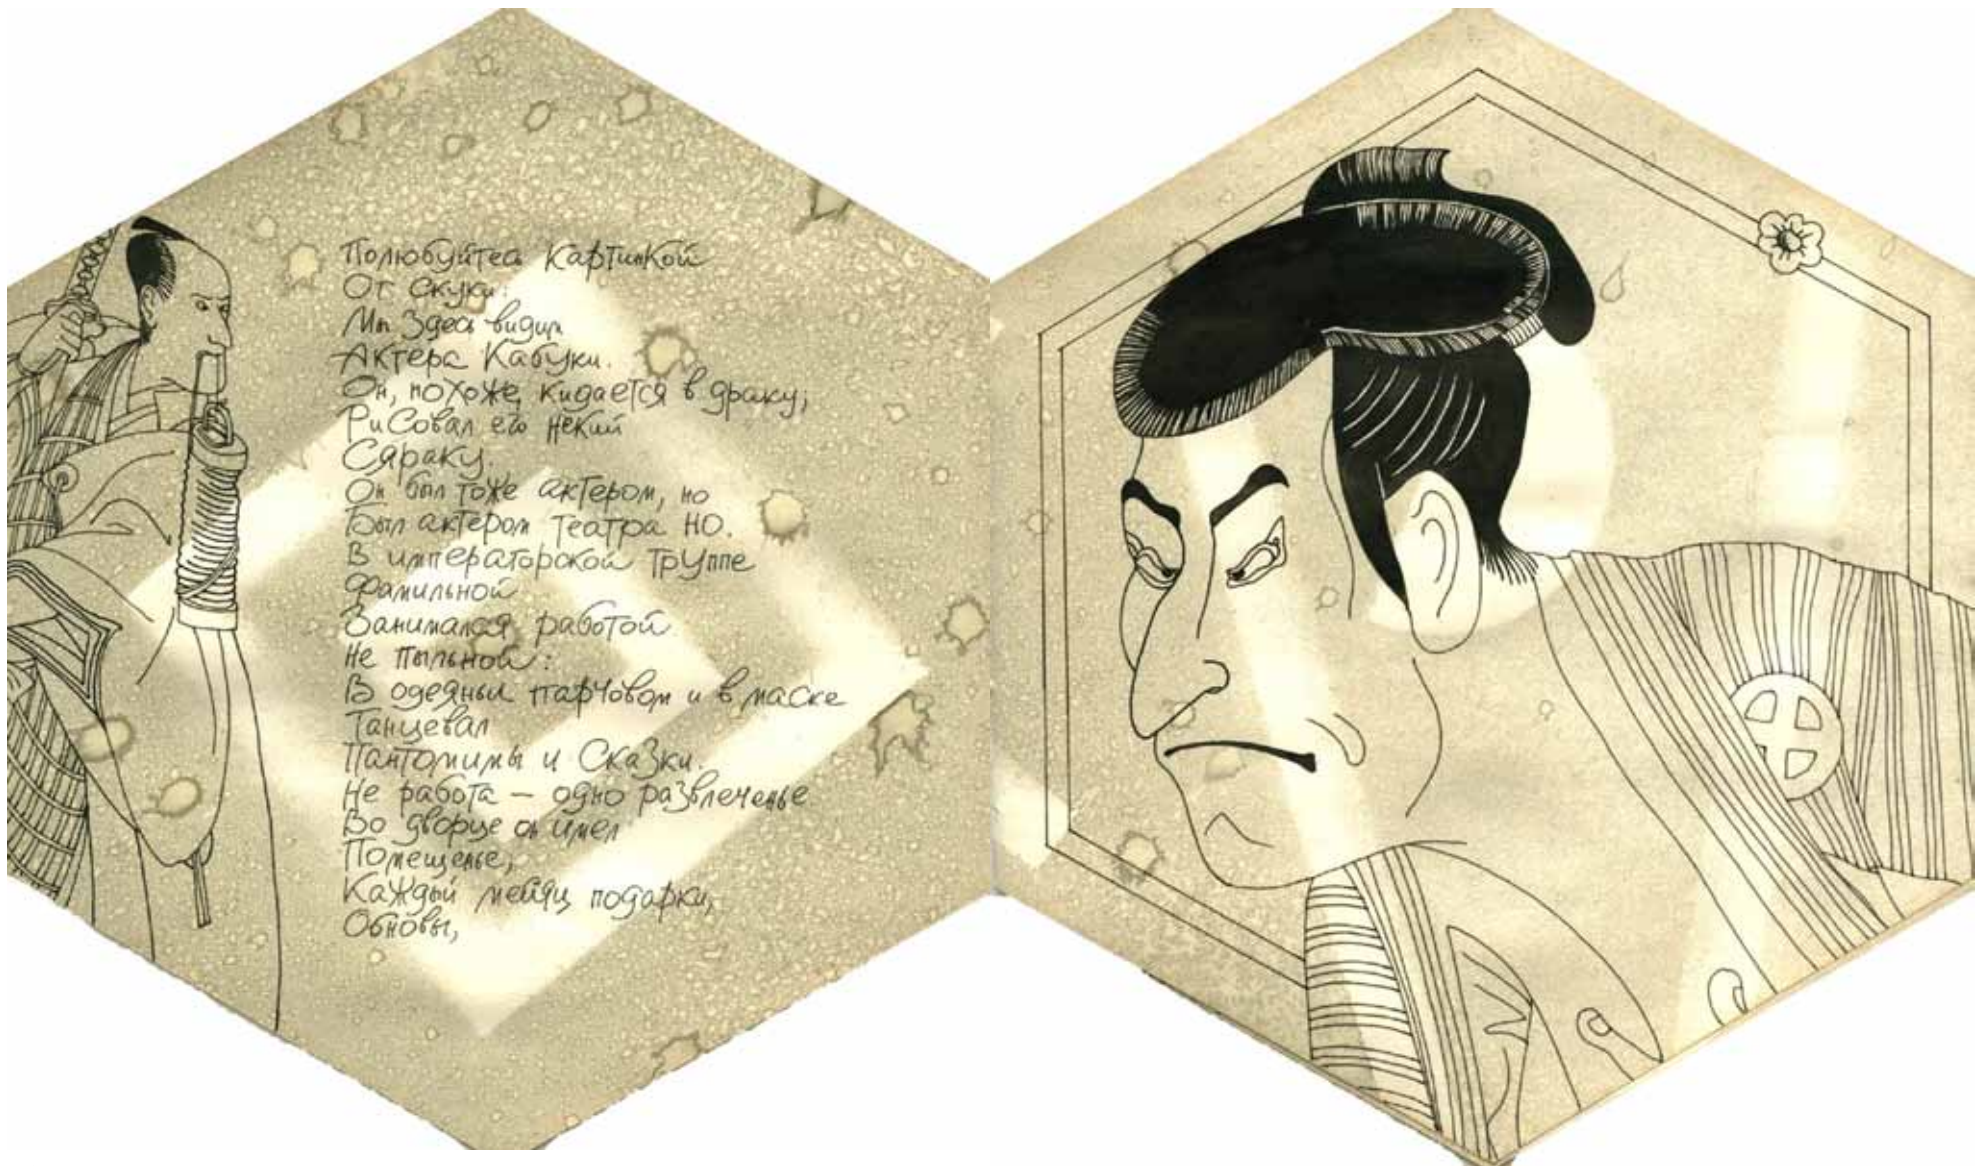 Полюбуйтесь картинкой
От скуки:
Мы здесь видим
Актера Кабуки.
Он, похоже, кидается в драку;
Рисовал его некий
Сяраку.
Он был тоже актером, но
Был актером театра НО.
В императорской труппе
Фамильной
Занимался работой
Не пыльной:
В одеяньи парчовом и в маске
Танцевал
Пантомимы и Сказки.
Не работа – одно развлеченье
Во дворце он имел
Помещенье,
Каждый месяц подарки,
Обновы,